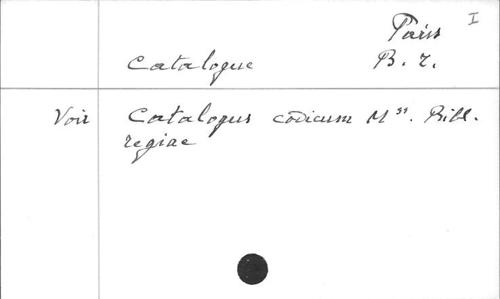 I
Paris
Catalogue B. r.
Voir Catalogus codicum Mss. Bibl.
regiae